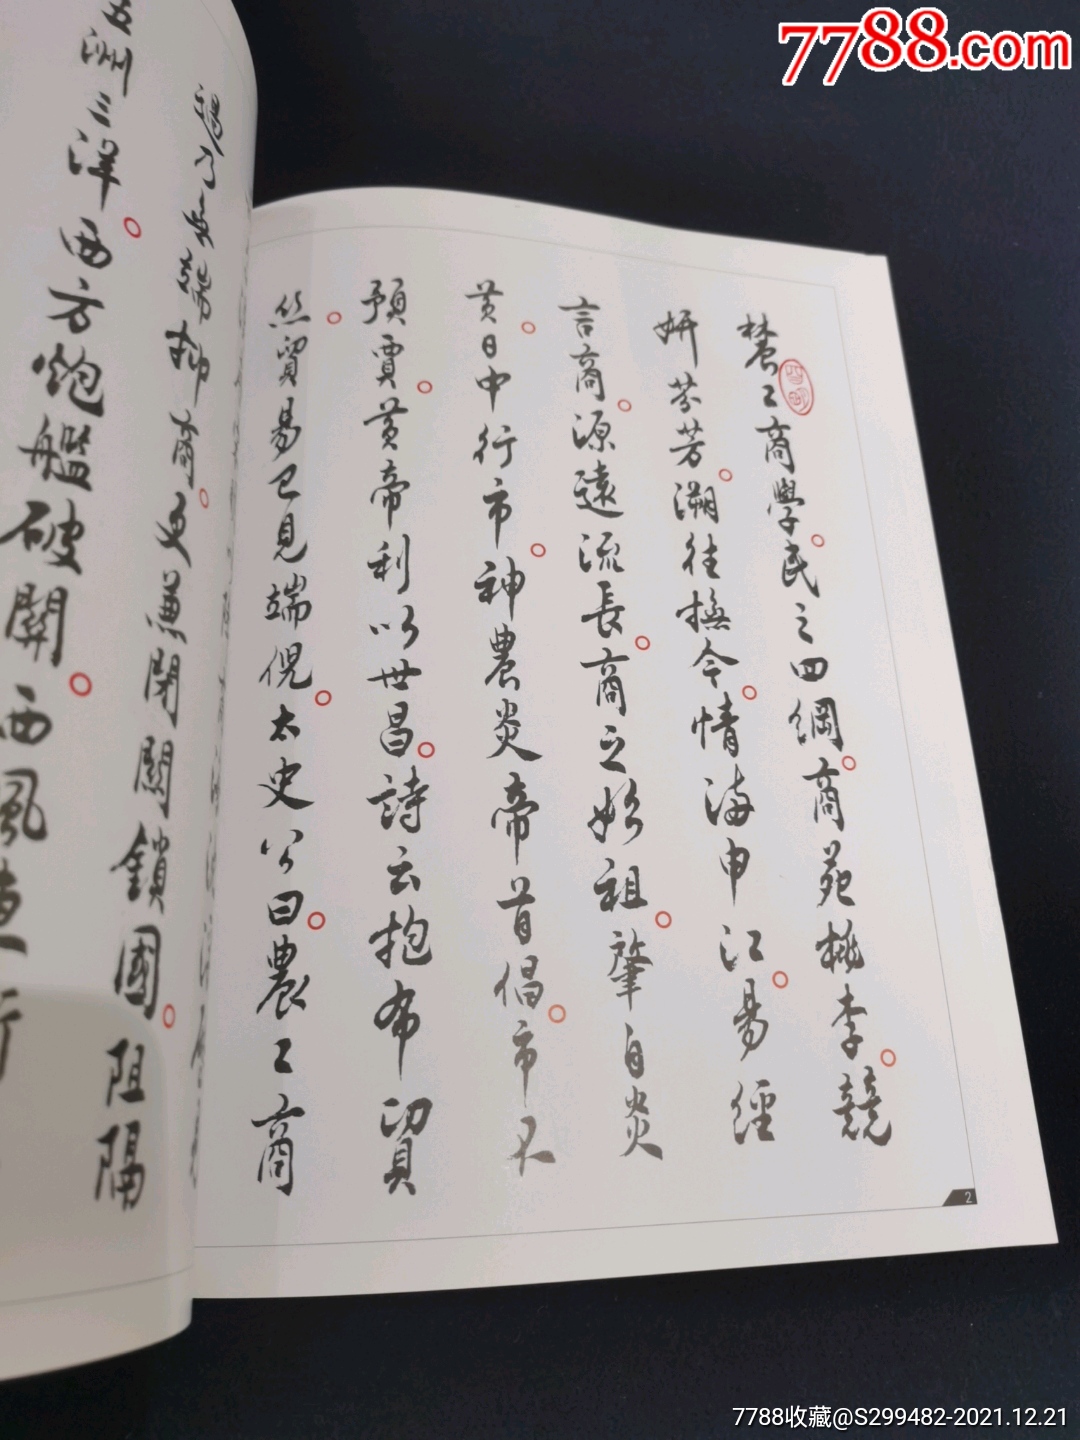 7788.com
農工商學民之四綱。商苑桃李。競
妍芬芳。溯往撫今。情海申江。易經
言商。源遠流長。商之始祖。肇自炎
黃。日中行市。神農炎帝首倡。市不
預賈。黃帝利以世昌。詩云抱布貿
丝。貿易已見端倪。太史公曰。農工商
抑商。更兼閉關鎖國。阻隔
五洲三洋。西方炮艦破關。西風
2
7788收藏@S299482-2021.12.21